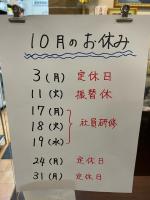 10月のお休み
3(月) 定休日
11(火) 振替休
17(月)
18(火) 社員研修
19(水)
24(月) 定休日
31(月) 定休日